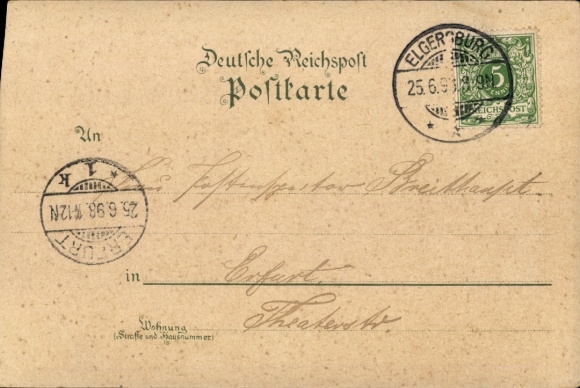 Deutsche Reichspost
Postkarte
ELGERSBURG
25.6.98.
* *
5
REICHSPOST
An
Postinspektor Breithaupt
* 1 k
25.6.98.
ERFURT
in Erfurt.
Theaterstr.
Wohnung
(Straße und Hausnummer)